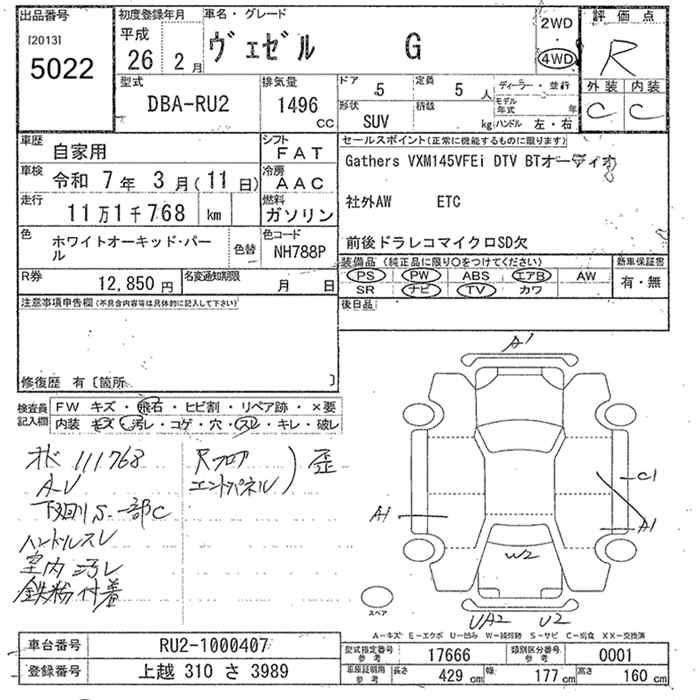 出品番号 初度登録年月 車名・グレード 評価点
[2013] 平成 2WD
5022 26 2月 ヴェゼル G 4WD R
外装 内装
C C
型式 排気量 ドア 5 定員 5 人 ディーラー・並行
DBA-RU2 1496 CC 形状 SUV 積載 kg モデル年式 年
ハンドル 左・右
車歴 自家用 シフト FAT セールスポイント(正常に機能するものに限ります)
車検 令和 7年 3月(11日) 冷房 AAC Gathers VXM145VFEi DTV BTオーディオ
走行 11万1千768 km 燃料 ガソリン 社外AW ETC
色 ホワイトオーキッド・パール 色替 色コード NH788P 前後ドラレコマイクロSD欠
R券 12,850 円 名変通知期限 月 日 装備品(純正品に限り○をつけてください) 新車保証書
PS PW ABS エアB AW 有・無
SR ナビ TV カワ
注意事項申告欄(不具合内容等は具体的に記入して下さい) 後日品
修復歴 有 [箇所 ]
検査員記入欄 FW キズ・飛石・ヒビ割・リペア跡・×要
内装 キズ・汚レ・コゲ・穴・スレ・キレ・破レ
A1
オド 111768 Rフロア 歪
A-V エンドパネル
下廻りS.一部C
ハンドルスレ
室内汚レ
鉄粉付着
C1
A1 A1
W2
スペア
UA2 U2
A-キズ E-エクボ U-凹み W-補修跡 S-サビ C-腐食 XX-交換済
車台番号 RU2-1000407 型式指定番号 参考 17666 類別区分番号 参考 0001
登録番号 上越 310 さ 3989 車庫証明用 参考 長さ 429 cm 幅 177 cm 高さ 160 cm